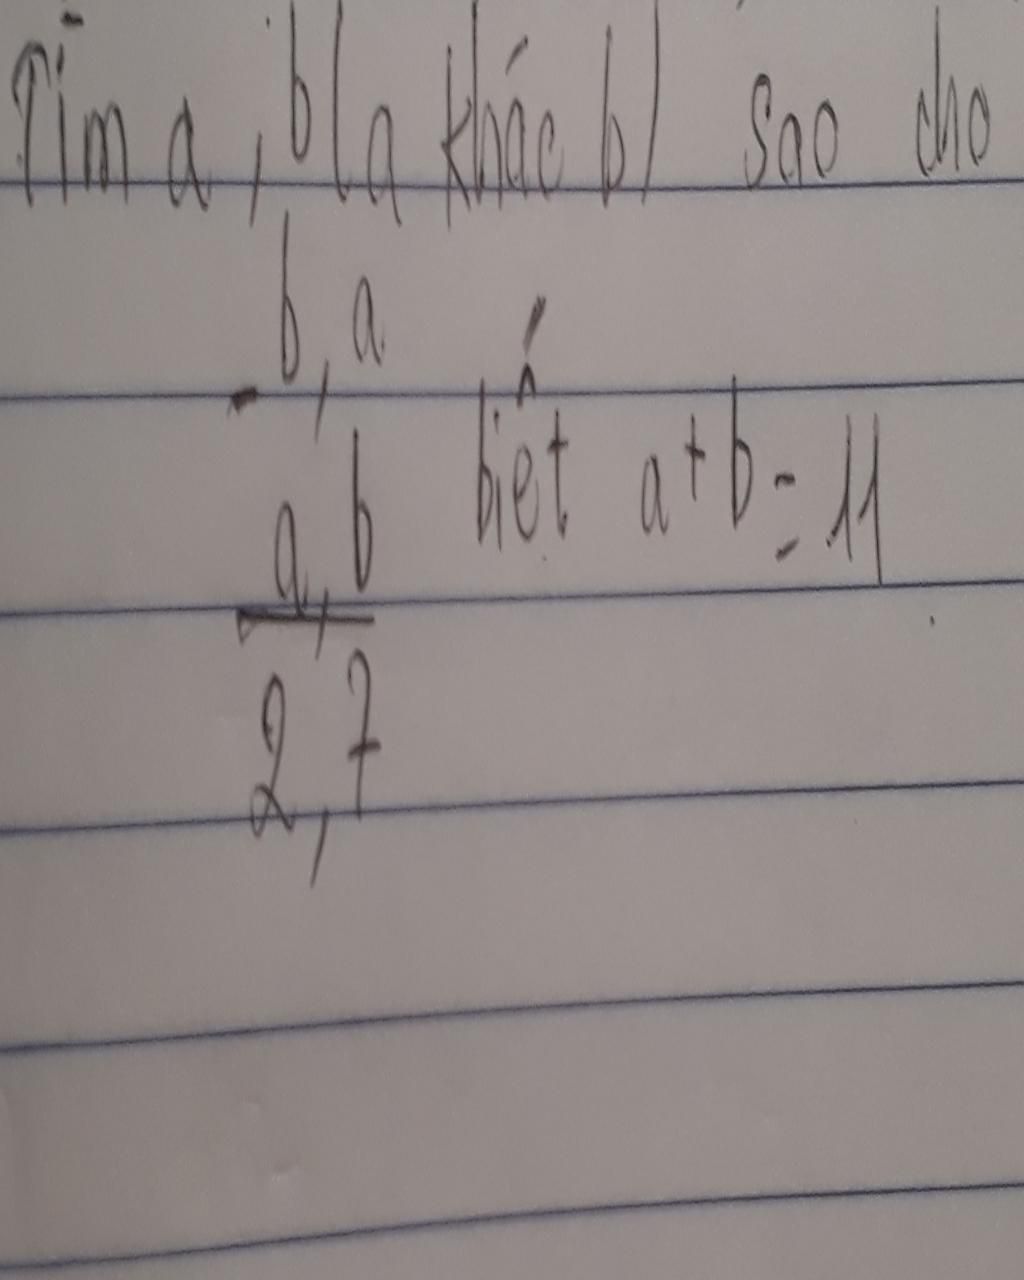 Tìm a, b (a khác b) sao cho
b,a
-
a,b biết a+b=11
2,7